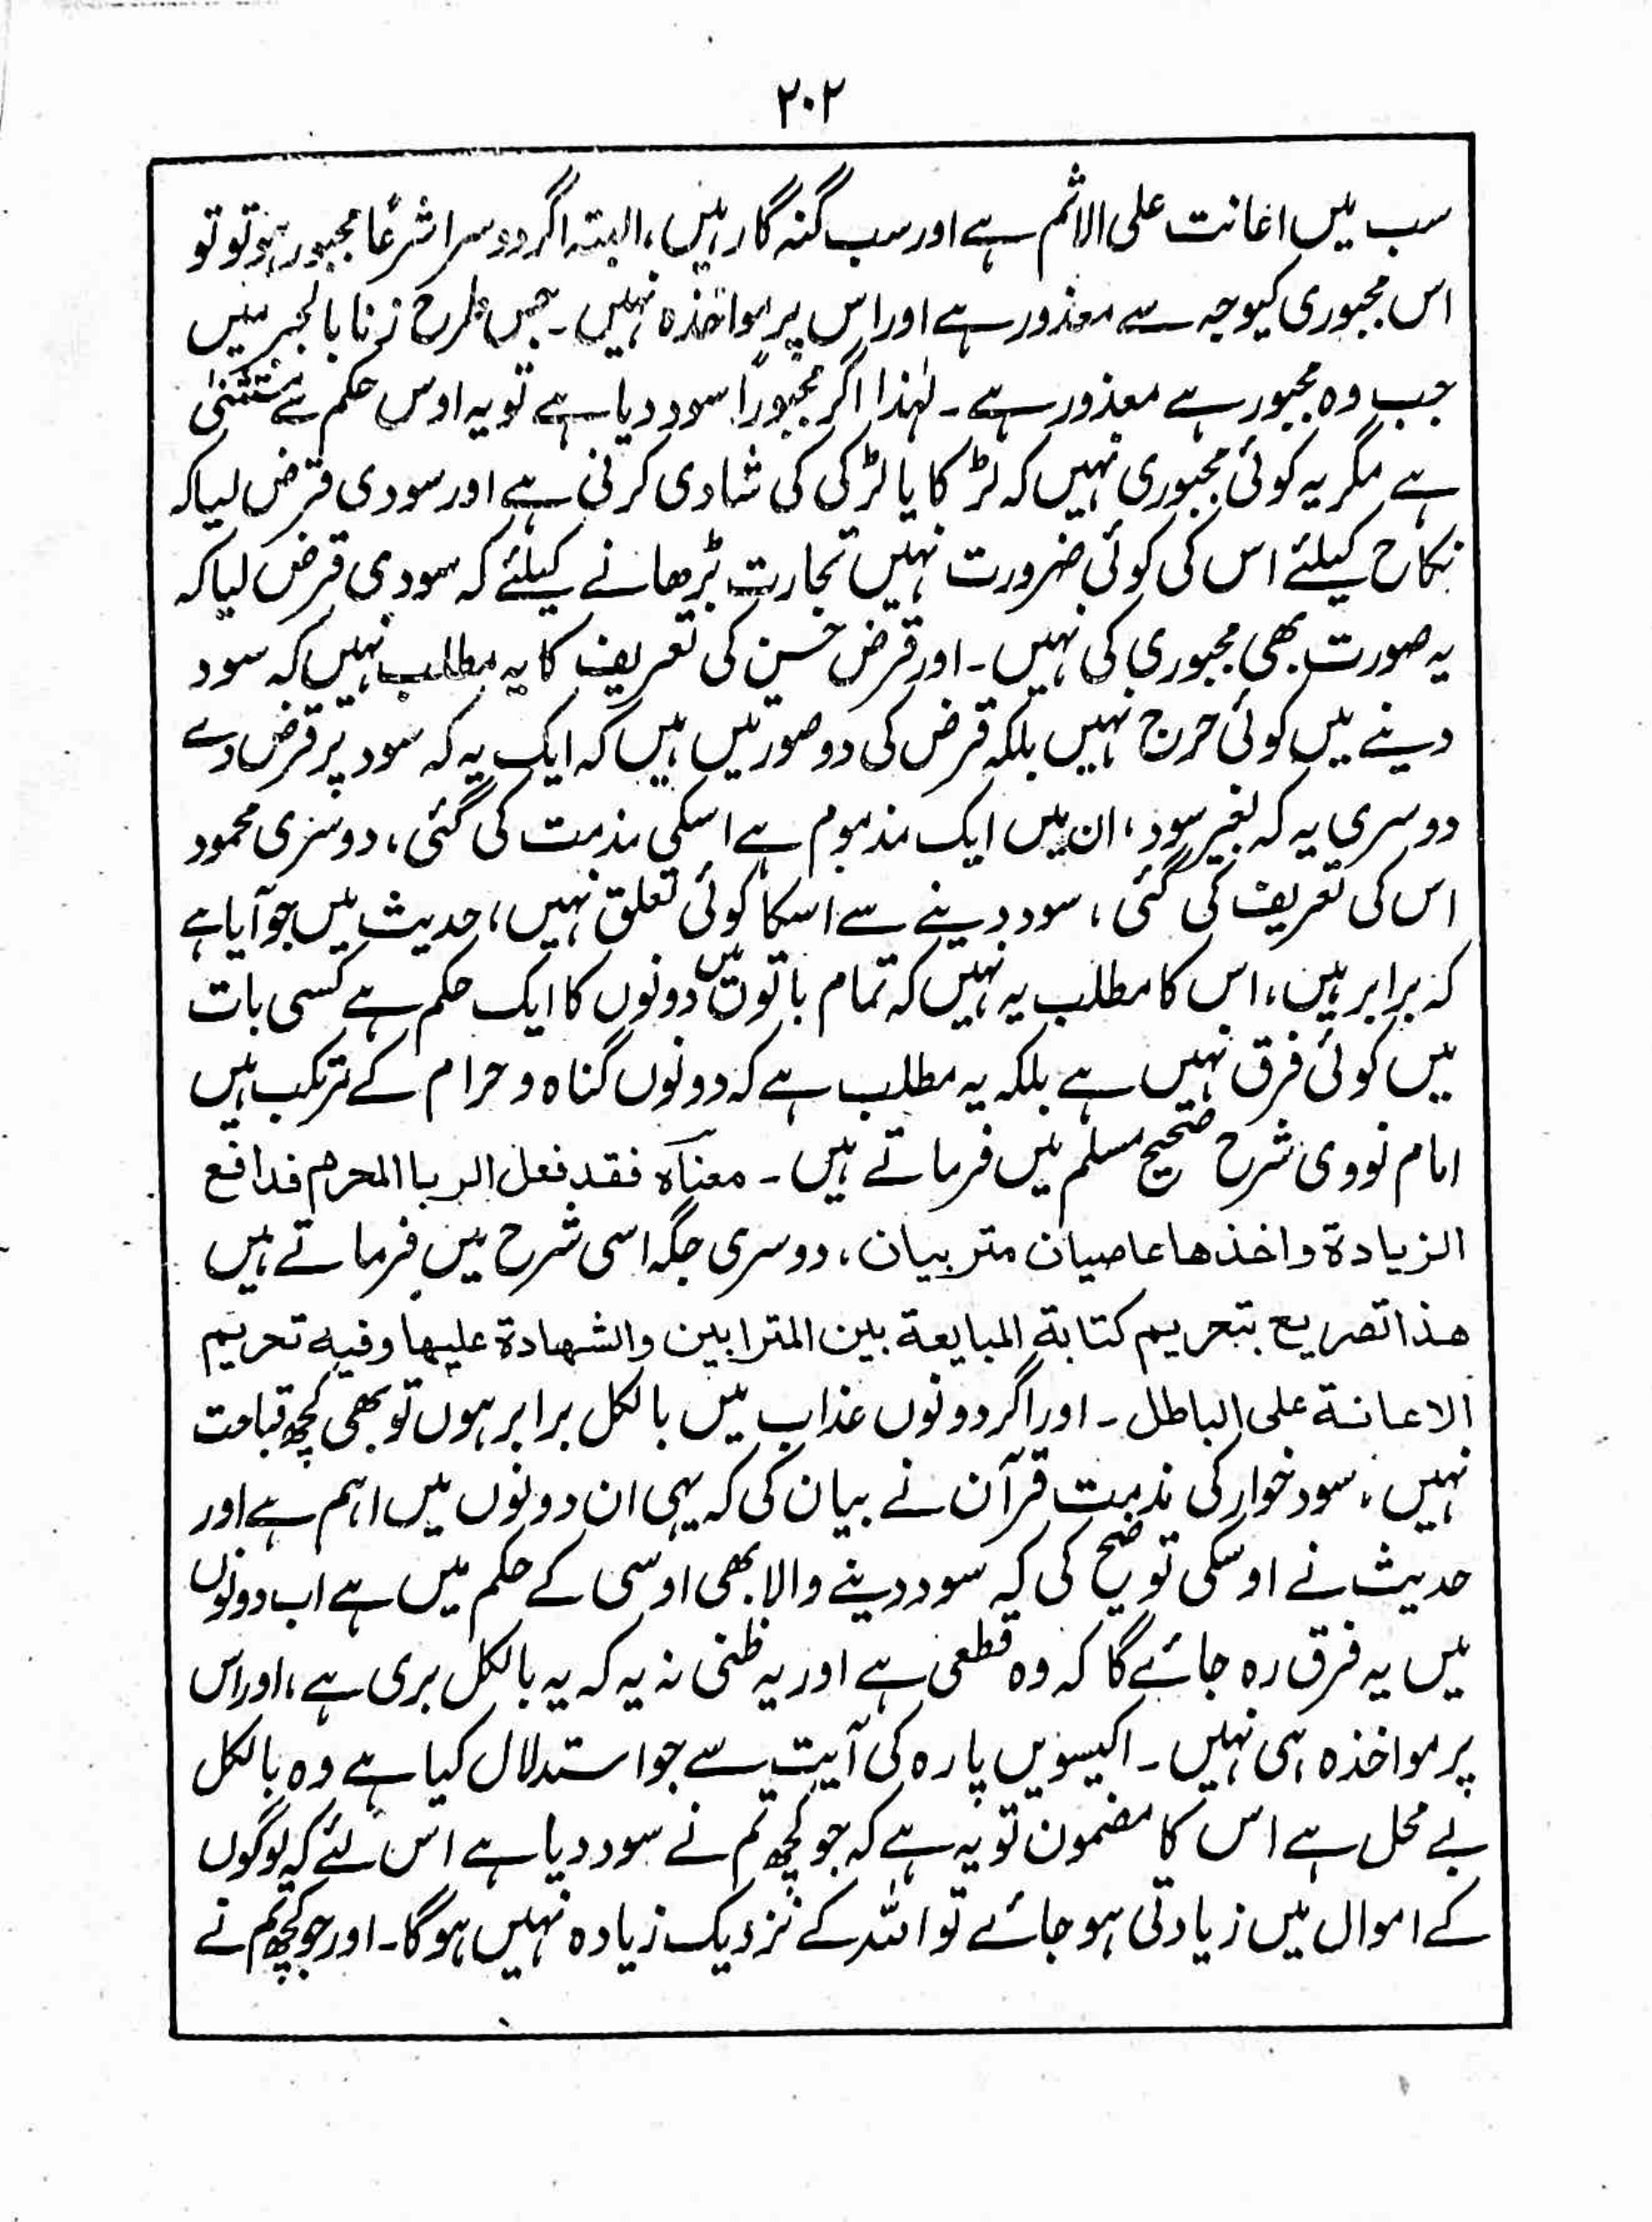 ۲۰۲
سب میں اعانت علی الاثم ہے اور سب گنہ گار ہیں، البتہ اگر دوسرا شرعًا مجبور ہو تو تو
اس مجبوری کیوجہ سے معذور ہے اور اس پر مواخذہ نہیں۔ جس طرح زنا بالجبر میں
جب وہ مجبور ہے معذور ہے۔ لہٰذا اگر مجبورًا سود دیا ہے تو یہ اوس حکم سے مستثنیٰ
ہے مگر یہ کوئی مجبوری نہیں کہ لڑکا یا لڑکی کی شادی کرنی ہے اور سودی قرض لیا کہ
نکاح کیلئے اس کی کوئی ضرورت نہیں تجارت بڑھانے کیلئے کہ سودی قرض لیا کہ
یہ صورت بھی مجبوری کی نہیں۔ اور قرض حسن کی تعریف کا یہ مطلب نہیں کہ سود
دینے میں کوئی حرج نہیں بلکہ قرض کی دو صورتیں ہیں کہ ایک یہ کہ سود پر قرض دے
دوسری یہ کہ بغیر سود، ان میں ایک مذموم ہے اسکی مذمت کی گئی، دوسری محمود
اس کی تعریف کی گئی، سود دینے سے اسکا کوئی تعلق نہیں، حدیث میں جو آیا ہے
کہ برابر ہیں، اس کا مطلب یہ نہیں کہ تمام باتوں میں دونوں کا ایک حکم ہے کسی بات
میں کوئی فرق نہیں ہے بلکہ یہ مطلب ہے کہ دونوں گناہ و حرام کے مرتکب ہیں
امام نووی شرح صحیح مسلم میں فرماتے ہیں۔ معناہ فقد فعل الربا المحرم فدافع
الزیادۃ واخذھا عاصیان متربیان، دوسری جگہ اسی شرح میں فرماتے ہیں
ھذا تصریح بتحریم کتابۃ المبایعۃ بین المترابین والشھادۃ علیھا وفیہ تحریم
الاعانۃ علی الباطل۔ اور اگر دونوں عذاب میں بالکل برابر ہوں تو بھی کچھ قباحت
نہیں، سود خوار کی مذمت قرآن نے بیان کی کہ یہی ان دونوں میں اہم ہے اور
حدیث نے اوسکی توضیح کی کہ سود دینے والا بھی اوسی کے حکم میں ہے اب دونوں
میں یہ فرق رہ جائے گا کہ وہ قطعی ہے اور یہ ظنی نہ یہ کہ یہ بالکل بری ہے، اور اس
پر مواخذہ ہی نہیں۔ اکیسویں پارہ کی آیت سے جو استدلال کیا ہے وہ بالکل
بے محل ہے اس کا مضمون تو یہ ہے کہ جو کچھ تم نے سود دیا ہے اس لئے کہ لوگوں
کے اموال میں زیادتی ہو جائے تو اللہ کے نزدیک زیادہ نہیں ہوگا۔ اور جو کچھ تم نے